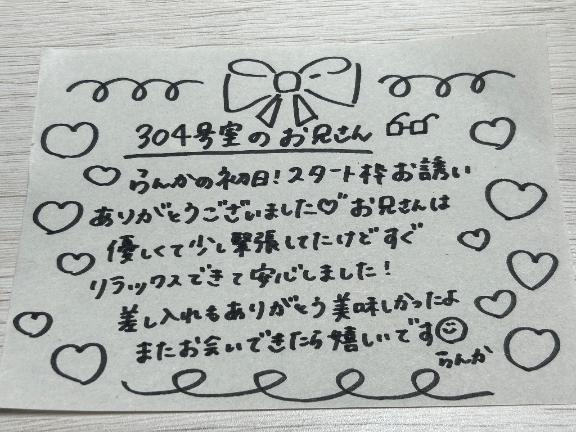 304号室のお兄さん
らんかの初日！スタート枠お誘い
ありがとうございました♡お兄さんは
優しくて少し緊張してたけどすぐ
リラックスできて安心しました！
差し入れもありがとう美味しかったよ
またお会いできたら嬉しいです☺
らんか